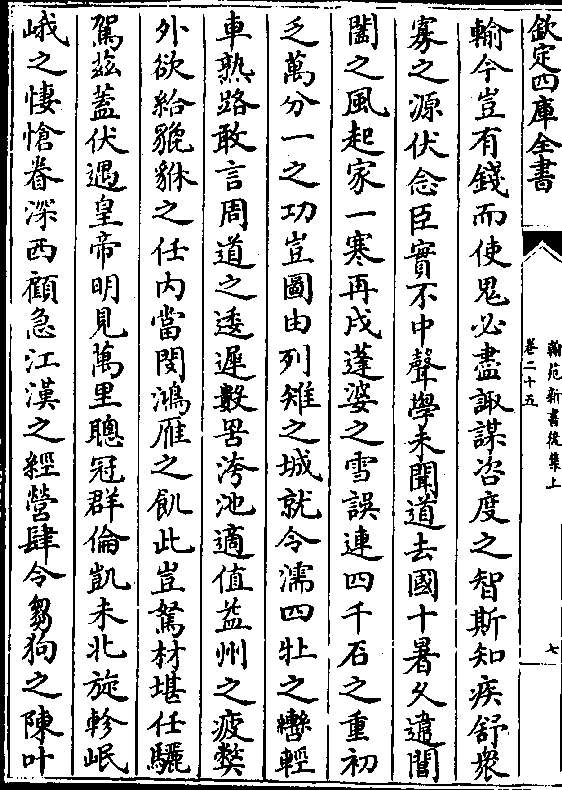 欽定四庫全書
翰苑新書後集上
卷二十五
七
輸今豈有錢而使鬼必盡諏謀咨度之智斯知疾舒衆
寡之源伏念臣實不中聲學未聞道去國十暑夂違閶
闔之風起家一寒再戍蓬婆之雪誤連四千石之重初
乏萬分一之功豈圖由列雉之城就令濡四牡之轡輕
車熟路敢言周道之逶遲數罟洿池適值益州之疲弊
外欲給貔貅之任内當閔鴻雁之飢此豈駑材堪任驪
駕兹蓋伏遇皇帝明見萬里聰冠群倫凱未北旋軫岷
峨之悽愴眷深西顧急江漢之經營肆令芻狗之陳叶